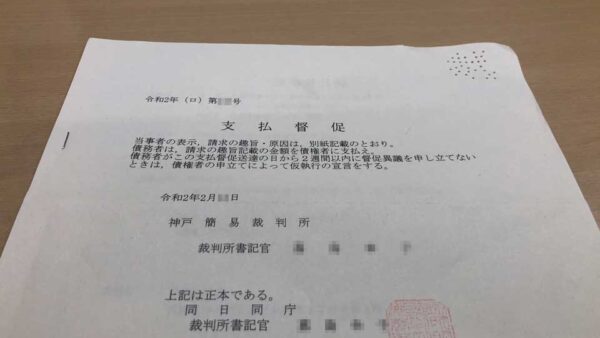 令和2年（ロ）第 号
支払督促
当事者の表示，請求の趣旨・原因は，別紙記載のとおり。
債務者は，請求の趣旨記載の金額を債権者に支払え。
債務者がこの支払督促送達の日から２週間以内に督促異議を申し立てない
ときは，債権者の申立てによって仮執行の宣言をする。
令和2年2月 日
神戸簡易裁判所
裁判所書記官
上記は正本である。
同日同庁
裁判所書記官